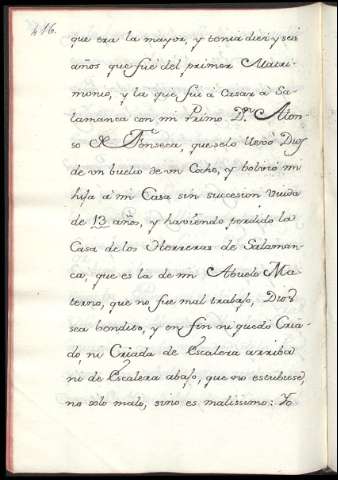 416.
que era la mayor, y tenia diez y seis
años que fué del primer Matri-
monio, y la que fué a casar a Sa-
lamanca con mi Primo Dn. Alon-
so de Fonseca, que se lo llevó Dios
de un buelco de un Coche, y bolvió mi
hija á mi Casa sin succesion viuda
de 13 años, y haviendo perdido la
Casa de los Herreras de Salaman-
ca, que es la de mi Abuelo Ma-
terno, que no fue mal trabajo, Dios
sea bendito, y en fin ni quedó Cria-
do, ni Criada de Escalera arriba
ni de Escalera abajo, que no estubiese,
no solo malo, sino es malissimo: Yo